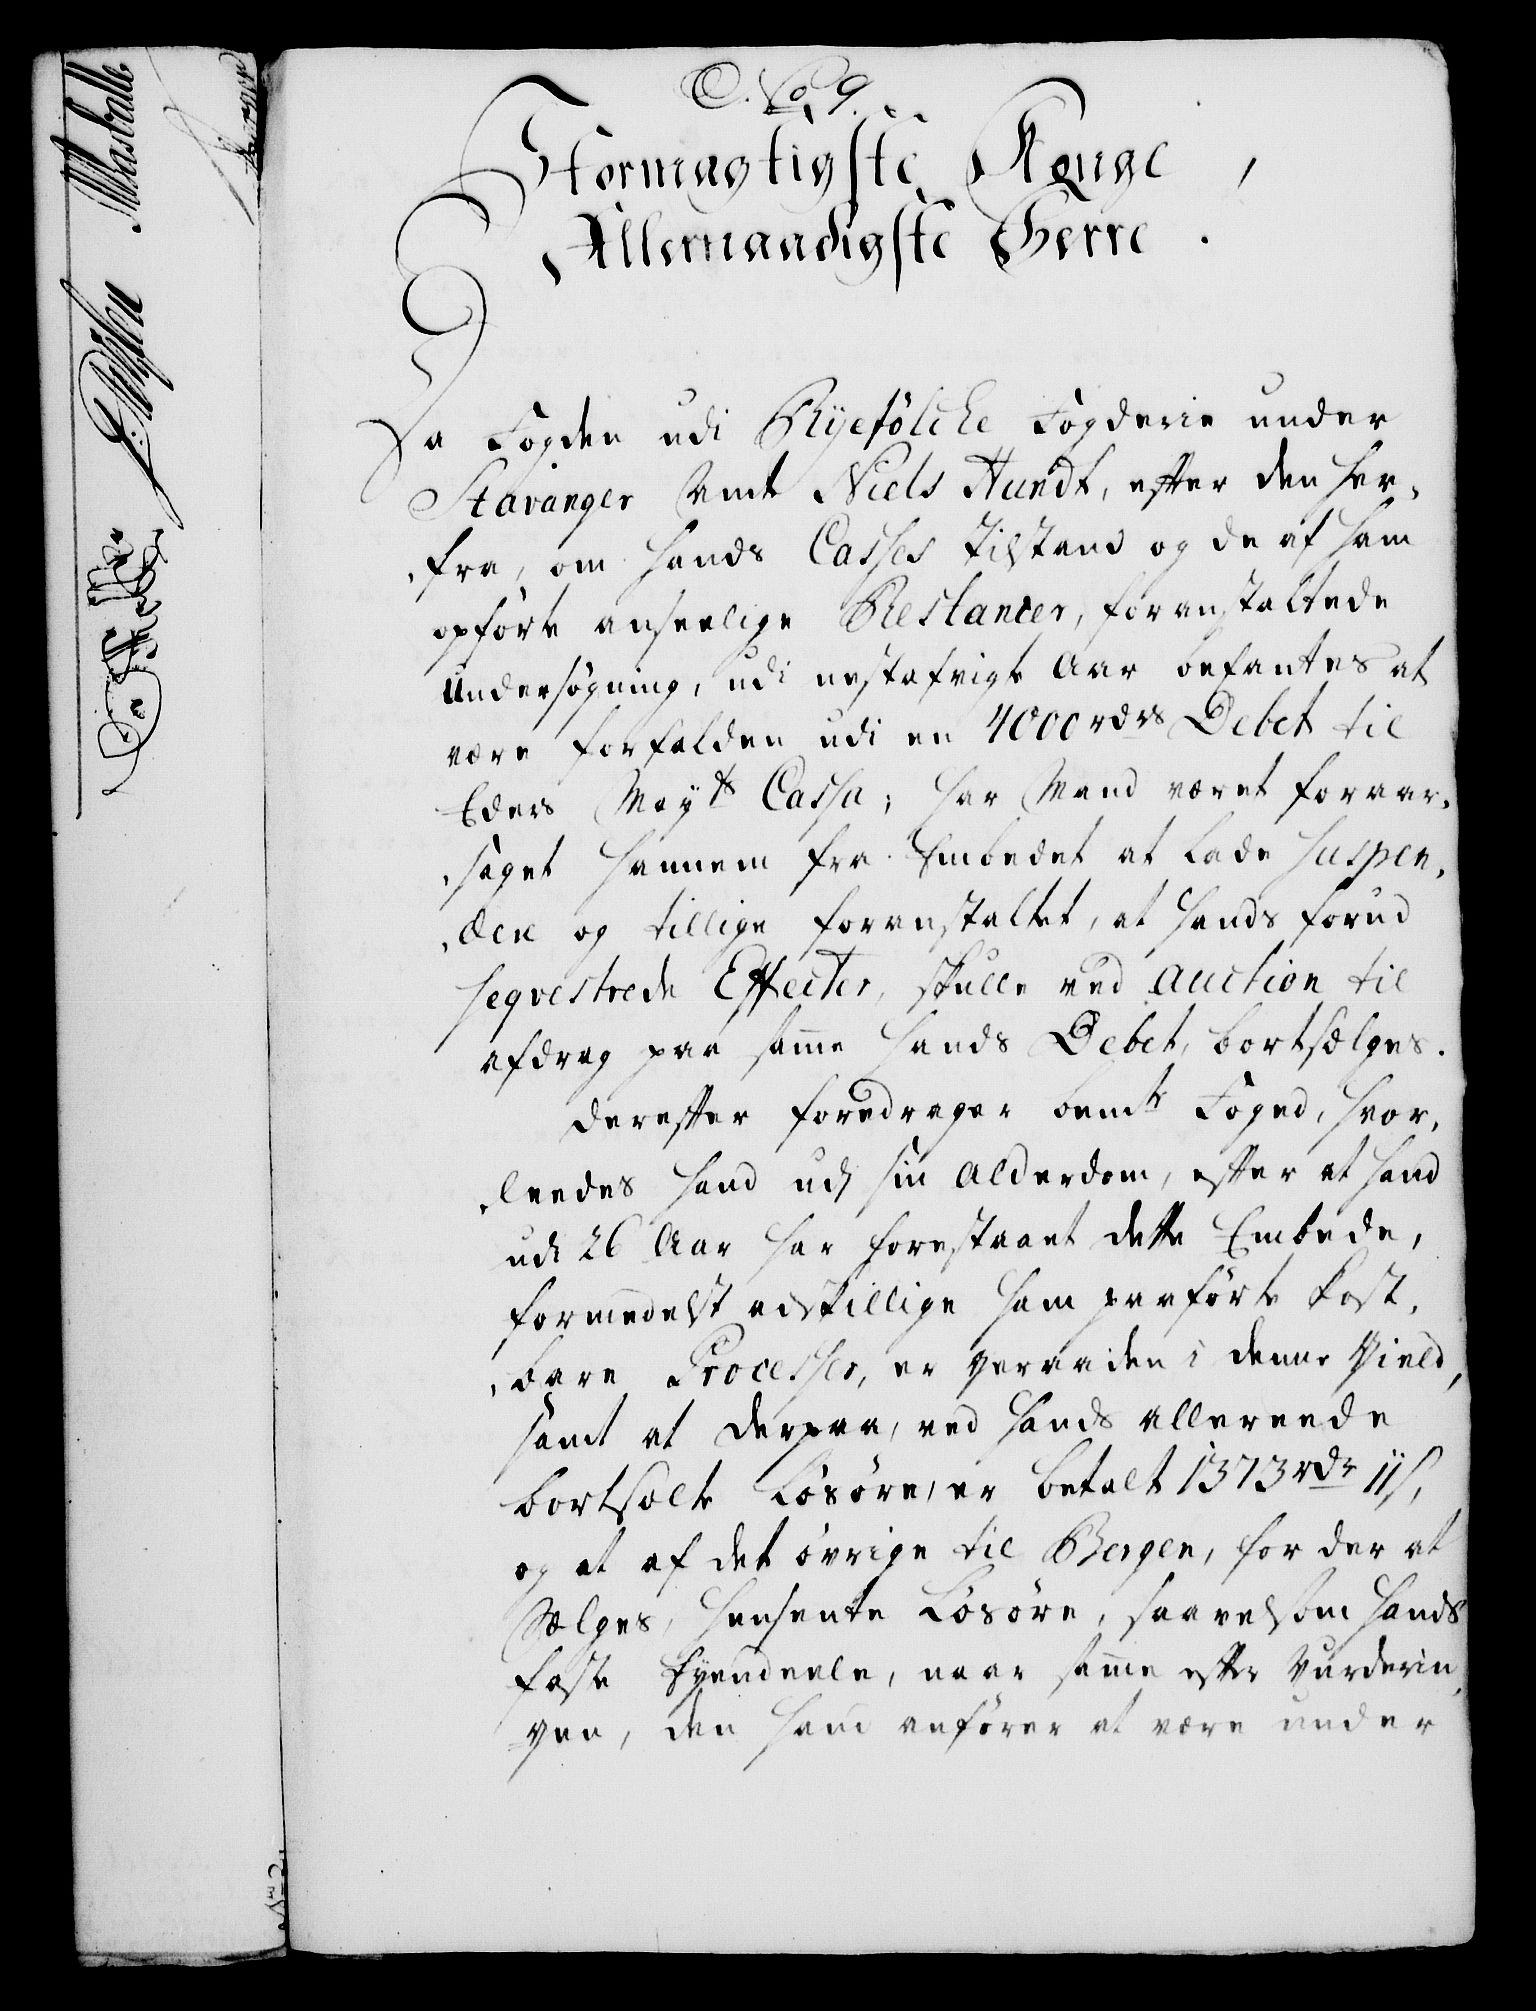 No 9.
Stormægtigste Konge,
Allernaadigste Herre.
Da Fogden udi Ryefölcke Fogderie under
Stavanger Amt Niels Hundt, efter den her-
-fra, om hands Casses tilstand og de af ham
opförte anseelige Restancer, foranstaltede
Undersögning, udi nestafvigte Aar befantes at
være forfalden udi en 4000 rdrs Debet til
Eders Mayts Cassa; har Mand været foraar-
-saget hannem fra Embedet at lade suspen-
-dere og tillige foranstaltet, at hands forud
seqvestrede Effecter, skulle ved Auction til
afdrag paa sam̄e hands Debet, bortsælges.
Derefter foredrager bemte Foged, hvor-
-leedes hand udj sin Alderdom, efter at hand
udi 26 Aar har forestaaet dette Embede,
formedelst adskillige ham paaförte kost-
-bare Processer, er geraaden i denne Gield,
samt at derpaa, ved hands allereede
bortsolte Lösöre, er betalt 1373 rdr 11 s,
og at af det övrige til Bergen, for der at
Sælges, hensente Lösöre, saavelsom hands
faste Eyendeele, naar sam̄e efter Vurderin-
-gen, den hand anförer at være under